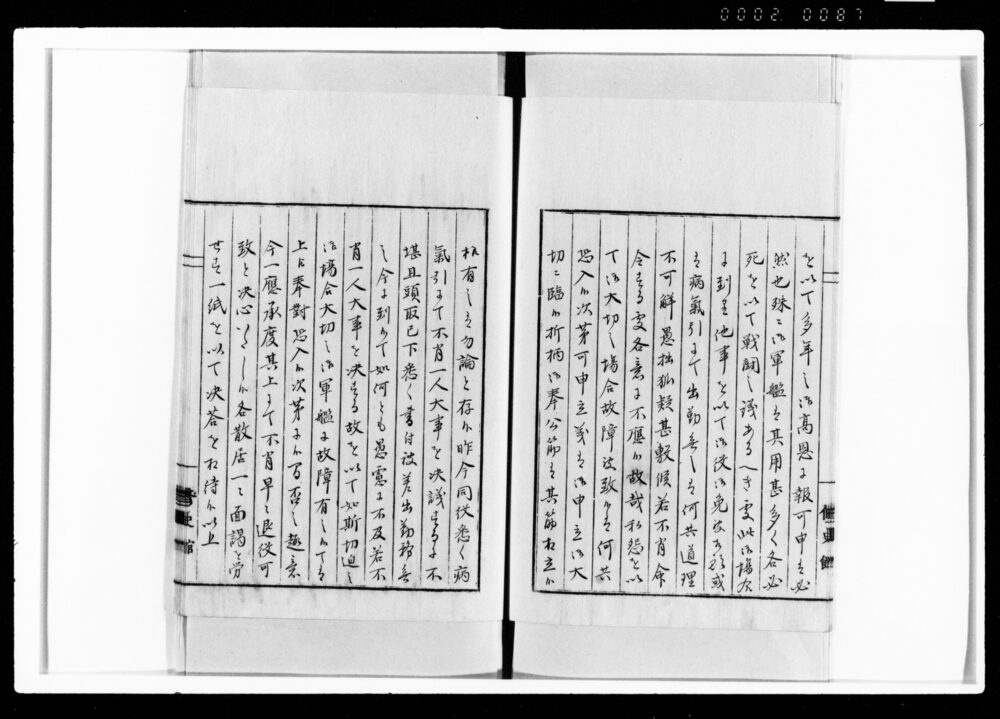 0002 0087
を以て多年之御高恩ニ報可申者必
然也殊ニ御軍艦者其用甚多く各必
死を以て戦闘之議あるへき処此御場合
ニ到里他事を以て御役御免被
者病気引ニて出勤無之者何共道理
不可解愚拙狐疑甚敷候若不肖余
令する処各意ニ不応候故哉私怨を以
て御大切之場合故障被致候而者何共
恐入候次第可申立義者御申立御大
切ニ臨候折柄御奉公筋者其筋相立候
板有之者勿論と存候昨今同役悉く病
気引ニて不肖一人大事を決議するニ不
堪且頭取已下悉く書付被差出勤務無
之今ニ到りて如何とも愚慮ニ不及若不
肖一人大事を決する故を以て如斯切迫之
御場合大切之御軍艦ニ故障有之候ては
上江奉対恐入候次第ニ候間否之趣意
今一應承度其上ニて不肖早々退役可
致と決心いたし候各散居一々面謁を労
せす一紙を以て決答を相待候以上